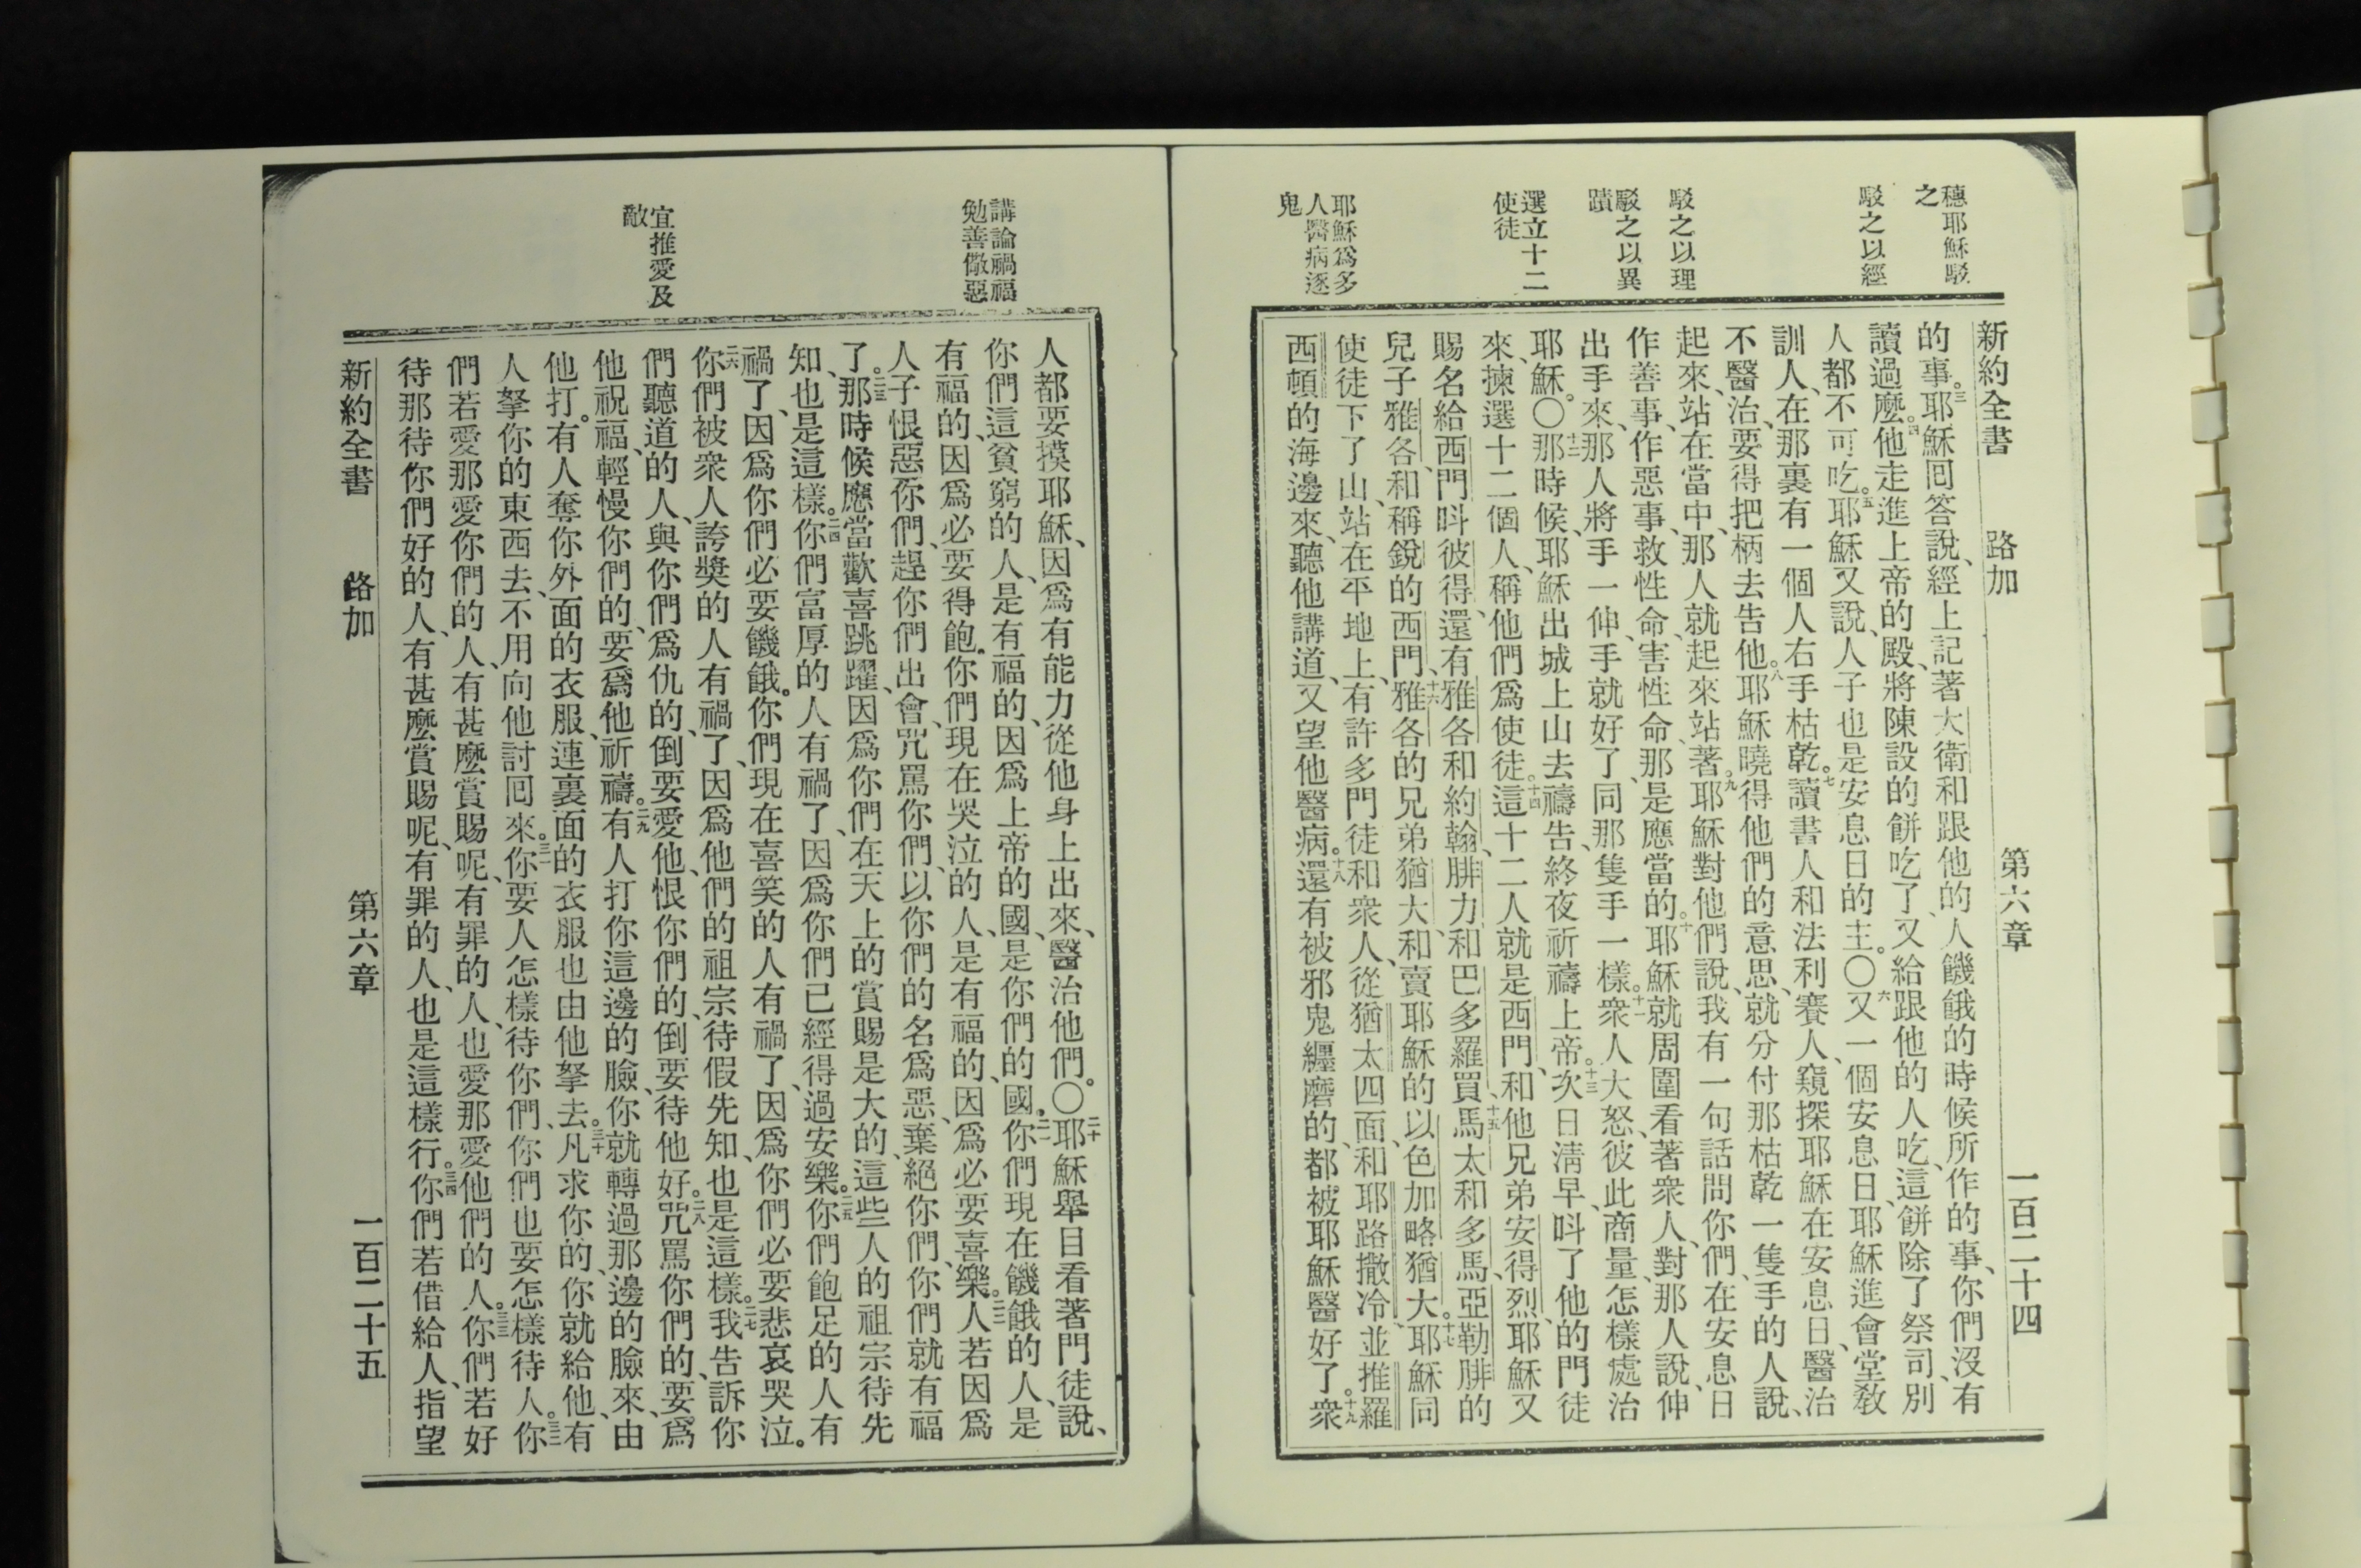 穗耶穌駁
之
駁之以經
駁之以理
駁之以異
蹟
選立十二
使徒
耶穌爲多
人醫病逐
鬼
新約全書 路加 第六章 一百二十四
的事。三耶穌囘答說、經上記著大衛和跟他的人饑餓的時候所作的事、你們沒有
讀過麽。四他走進上帝的殿、將陳設的餅吃了、又給跟他的人吃、這餅除了祭司、別
人都不可吃。五耶穌又說、人子也是安息日的主。〇六又一個安息日、耶穌進會堂敎
訓人、在那裏有一個人右手枯乾。七讀書人和法利賽人、窺探耶穌在安息日、醫治
不醫治、要得把柄去告他。八耶穌曉得他們的意思、就分付那枯乾一隻手的人說、
起來、站在當中、那人就起來站著。九耶穌對他們說、我有一句話問你們、在安息日
作善事、作惡事、救性命、害性命、那是應當的。十耶穌就周圍看著衆人、對那人說、伸
出手來、那人將手一伸、手就好了、同那隻手一樣。十一衆人大怒、彼此商量、怎樣處治
耶穌。〇十二那時候、耶穌出城上山去禱告、終夜祈禱上帝。十三次日淸早、呌了他的門徒
來、揀選十二個人、稱他們爲使徒。十四這十二人就是西門、和他兄弟安得烈、耶穌又
賜名給西門呌彼得、還有雅各和約翰、腓力和巴多羅買、十五馬太和多馬、亞勒腓的
兒子雅各、和稱銳的西門、十六雅各的兄弟猶大、和賣耶穌的以色加略猶大。十七耶穌同
使徒下了山、站在平地上、有許多門徒和衆人、從猶太四面、和耶路撒冷、並推羅
西頓的海邊來、聽他講道、又望他醫病。十八還有被邪鬼纏磨的、都被耶穌醫好了。十九衆
講論禍福
勉善儆惡
宜推愛及
敵
人都要摸耶穌、因爲有能力從他身上出來、醫治他們。〇二十耶穌舉目看著門徒、說、
你們這貧窮的人、是有福的、因爲上帝的國、是你們的國。二一你們現在饑餓的人、是
有福的、因爲必要得飽。你們現在哭泣的人、是有福的、因爲必要喜樂。二二人若因爲
人子恨惡你們、趕你們出會、咒罵你們、以你們的名爲惡、棄絕你們、你們就有福
了。二三那時候應當歡喜跳躍、因爲你們在天上的賞賜是大的、這些人的祖宗待先
知、也是這樣。二四你們富厚的人有禍了、因爲你們已經得過安樂。二五你們飽足的人有
禍了、因爲你們必要饑餓。你們現在喜笑的人有禍了、因爲你們必要悲哀哭泣。
二六你們被衆人誇獎的人有禍了、因爲他們的祖宗待假先知、也是這樣。二七我告訴你
們聽道的人、與你們爲仇的、倒要愛他、恨你們的、倒要待他好。二八咒罵你們的、要爲
他祝福、輕慢你們的、要爲他祈禱。二九有人打你這邊的臉、你就轉過那邊的臉來、由
他打。有人奪你外面的衣服、連裏面的衣服也由他拏去。三十凡求你的、你就給他、有
人拏你的東西去、不用向他討囘來。三一你要人怎樣待你們、你們也要怎樣待人。三二你
們若愛那愛你們的人、有甚麽賞賜呢、有罪的人、也愛那愛他們的人。三三你們若好
待那待你們好的人、有甚麽賞賜呢、有罪的人、也是這樣行。三四你們若借給人、指望
新約全書 路加 第六章 一百二十五